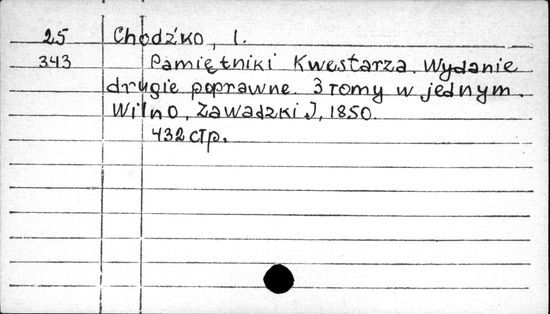 25 Chodźko, I.
343 Pamiętniki Kwestarza. Wydanie
drugie poprawne. 3 tomy w jednym.
Wilno, Zawadzki J, 1850.
432 стр.